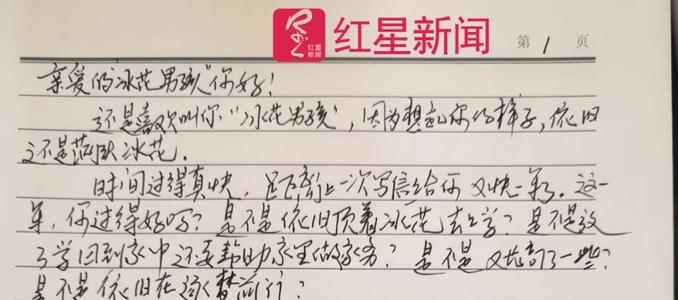 红星新闻
红星新闻
第 1 页
亲爱的“冰花男孩”你好！
还是喜欢叫你“冰花男孩”，因为想起你的样子，依旧
还是满头冰花。
时间过得真快，距离上一次写信给你又快一年了。这一
年，你过得好吗？是不是依旧顶着冰花去上学？是不是放
了学回到家中还要帮助家里做家务？是不是又长高了一些？
是不是依旧在逐梦前行？